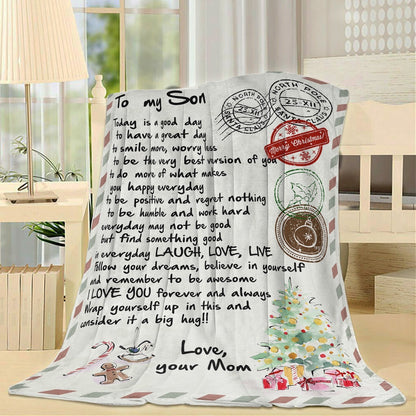 To my Son
Today is a good day
to have a great day
to smile more, worry less
to be the very best version of you
to do more of what makes
you happy everyday
to be positive and regret nothing
to be humble and work hard
everyday may not be good
but find something good
in everyday LAUGH, LOVE, LIVE
Follow your dreams, believe in yourself
and remember to be awesome
I LOVE YOU forever and always
Wrap yourself up in this and
consider it a big hug!!
Love,
your Mom
NORTH POLE
23-XII
SANTA CLAUS
NORTH POLE
23-XII
SANTA CLAUS
Merry Christmas